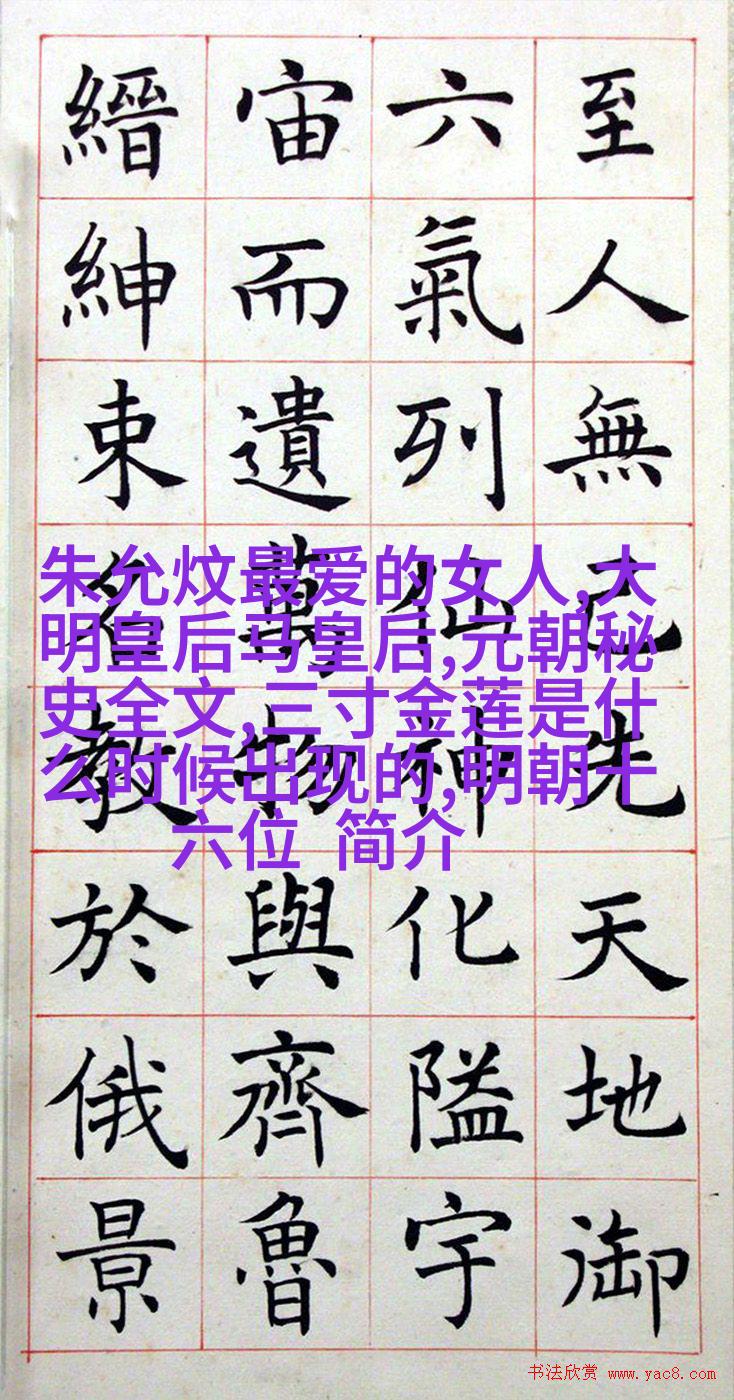 至人無己先天地御
六氣列仙神化隘宇
宙而遺萬物與齊魯
縉紳束名教於俄景
朱允炆最爱的女人,大
明皇后马皇后,元朝秘
史全文,三寸金莲是什
么时候出现的,明朝十
六位 简介
书法欣赏 www.yac8.com